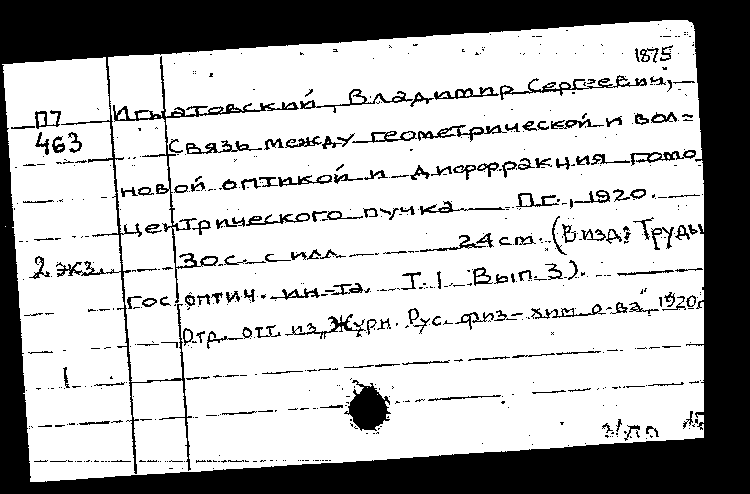 1875
П7 Игнатовский, Владимир Сергеевич,
463 Связь между геометрической и вол=
новой оптикой и диффракция гомо
центрического пучка Пг., 1920.
2 экз. 30 с. с илл 24 cm. (В изд: Труды
Гос. оптич. ин-та. Т. 1 Вып. 3).
Отд. отт. из "Журн. Рус. физ-хим о-ва", 1920г
1